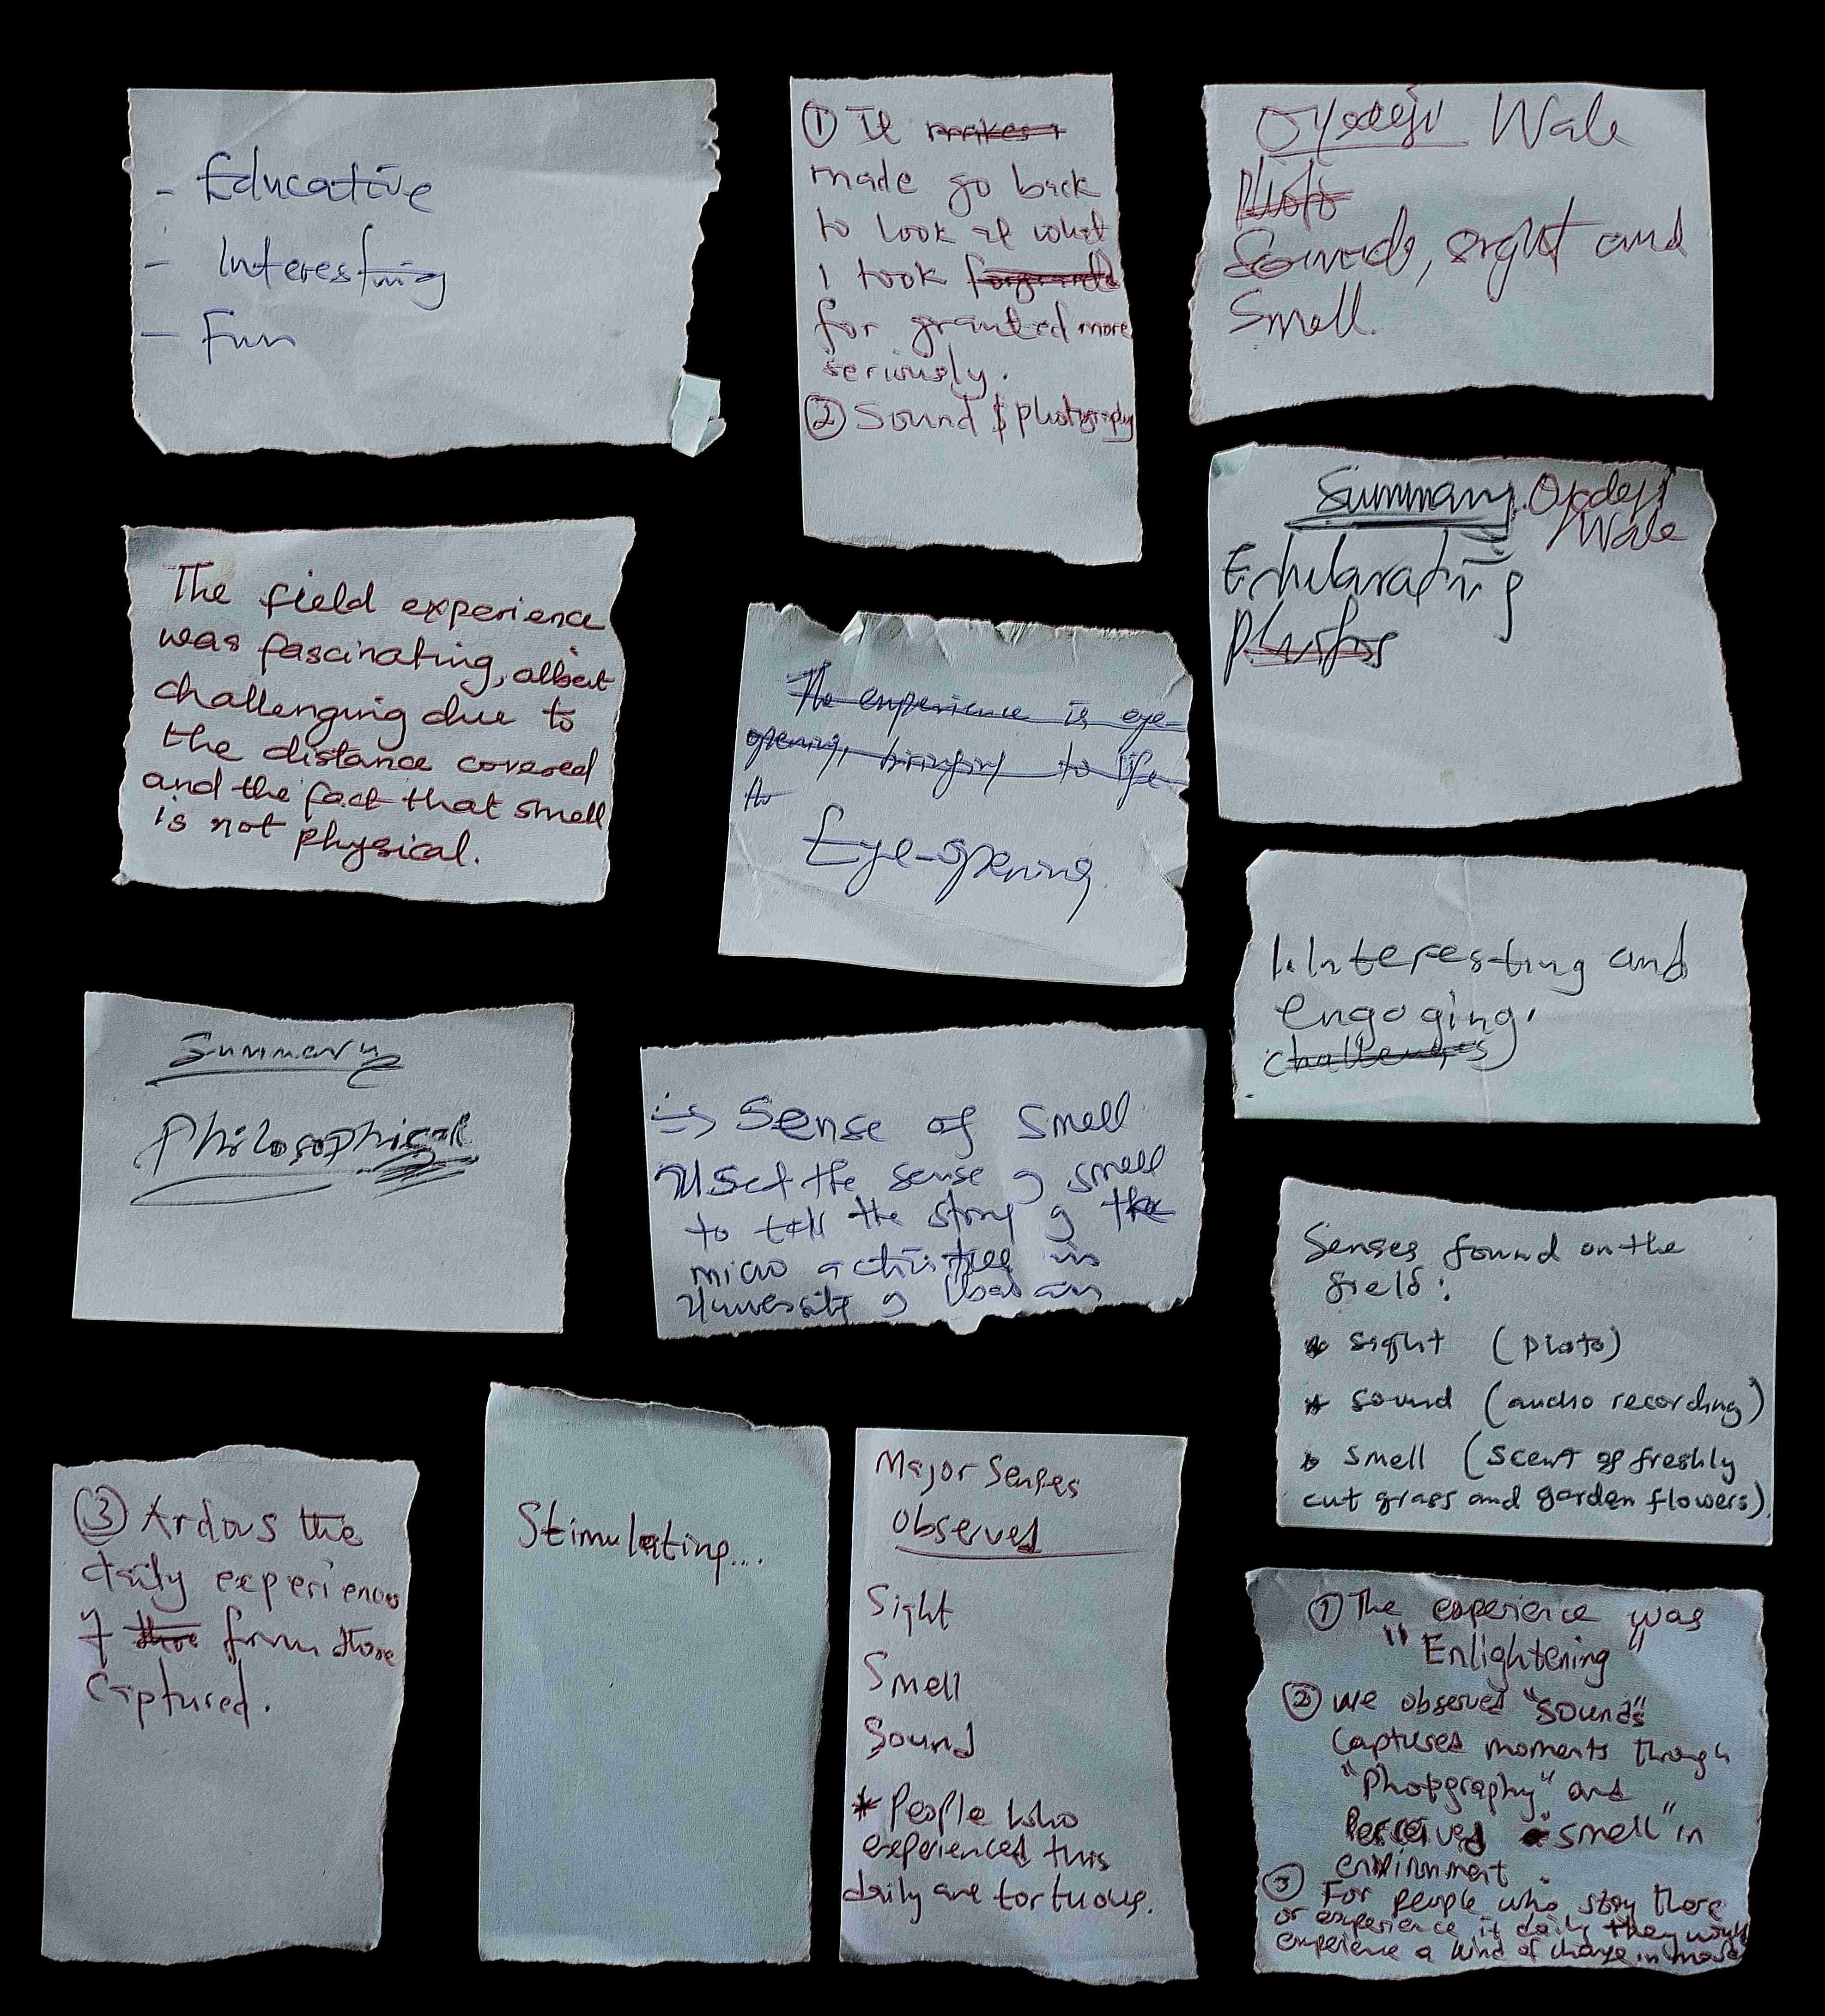 - Educative
- Interesting
- Fun
① It makes
made go back
to look at what
I took
for granted more
seriously.
② Sound & photography
Oyedeji Wale
Photo
Sounds, sight and
Smell.
Summary Oyedeji
Wale
Exhilarating
Photos
The field experience
was fascinating, albeit
challenging due to
the distance covered
and the fact that smell
is not physical.
The experience is eye-
opening, bringing to life
the
Eye-opening.
1. Interesting and
engoging.
challenges
Summary
Philosophical
=> Sense of Smell
Used the sense of smell
to tell the story of the
micro activities in
University of Ibadan
Senses found on the
field:
* sight (photo)
* sound (audio recording)
* smell (scent of freshly
cut grass and garden flowers).
③ Ardous the
daily experience
of from those
captured.
Stimulating...
Major Senses
Observed
Sight
Smell
Sound
* People who
experienced this
daily are tortuous.
① The experience was
"Enlightening"
② We observed "Sounds"
Captured moments through
"Photography" and
Perceived "smell" in
environment.
③ For people who stay there
or experience it daily they would
experience a kind of change in mood